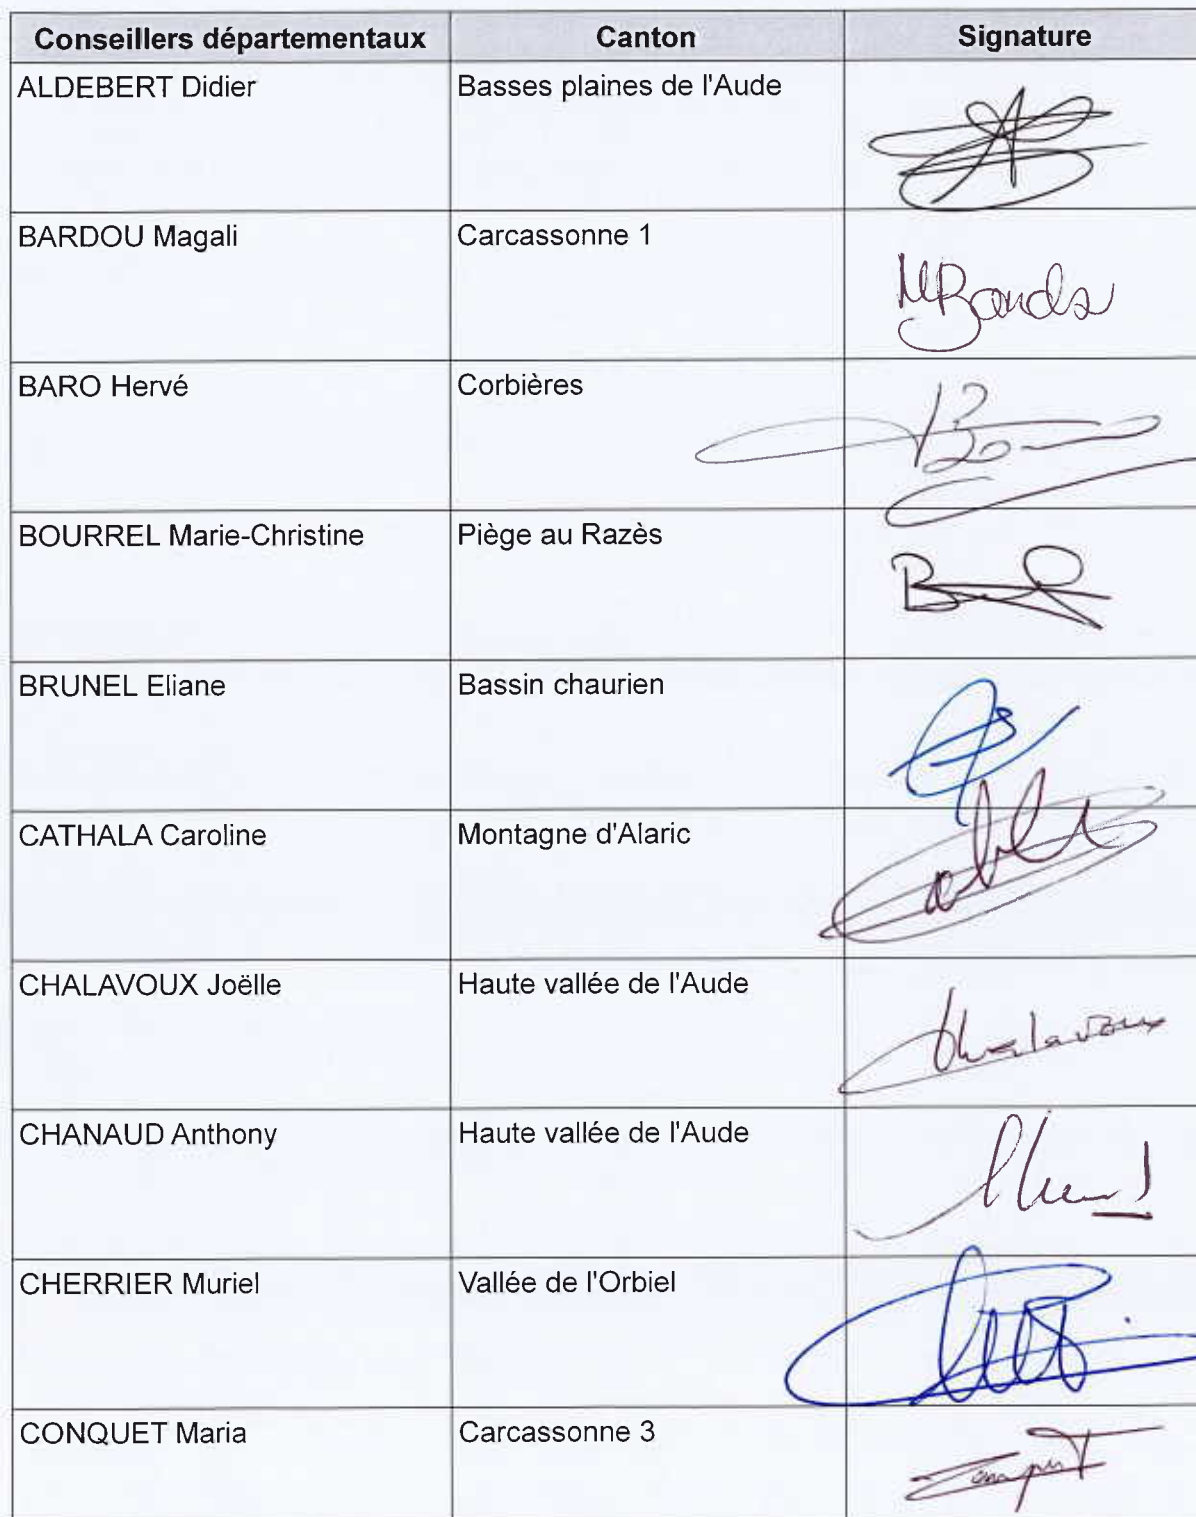 Conseillers départementaux Canton Signature
ALDEBERT Didier Basses plaines de l'Aude
BARDOU Magali Carcassonne 1
BARO Hervé Corbières
BOURREL Marie-Christine Piège au Razès
BRUNEL Eliane Bassin chaurien
CATHALA Caroline Montagne d'Alaric
CHALAVOUX Joëlle Haute vallée de l'Aude
Chalavoux
CHANAUD Anthony Haute vallée de l'Aude
CHERRIER Muriel Vallée de l'Orbiel
CONQUET Maria Carcassonne 3